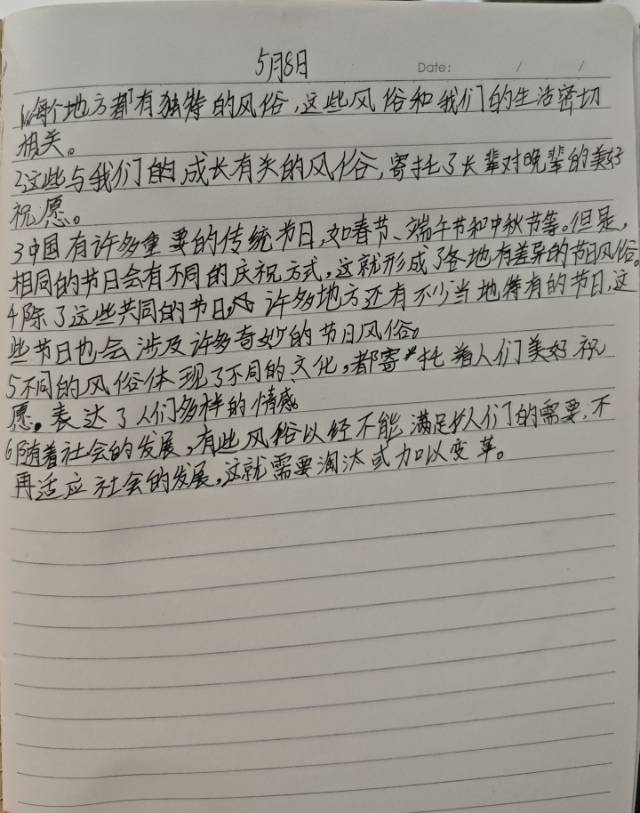 5月8日
Date: / /
1每个地方都有独特的风俗,这些风俗和我们的生活密切
相关。
2这些与我们的成长有关的风俗,寄托了长辈对晚辈的美好
祝愿。
3中国有许多重要的传统节日,如春节、端午节和中秋节等。但是,
相同的节日会有不同的庆祝方式,这就形成了各地有差异的节日风俗。
4除了这些共同的节日,许多地方还有不少当地特有的节日,这
些节日也会涉及许多奇妙的节日风俗。
5不同的风俗体现了不同的文化,都寄托着人们美好祝
愿。表达了人们多样的情感
6随着社会的发展,有些风俗以经不能满足人们的需要,不
再适应社会的发展,这就需要淘汰或加以变革。